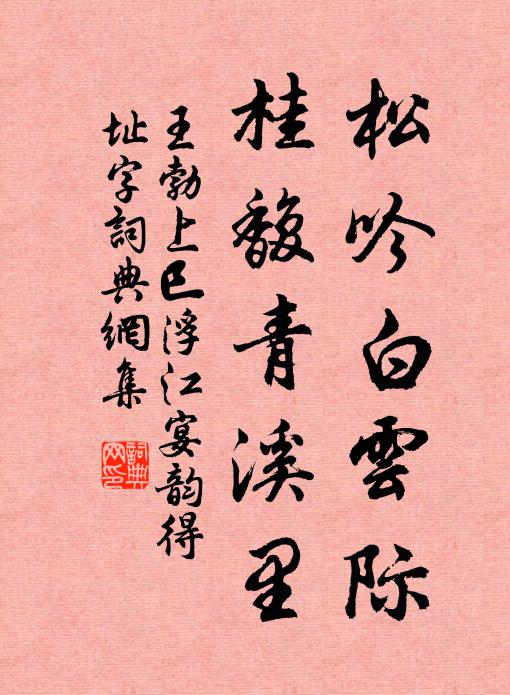 松吟白雲际
桂馥青溪里
王勃上巳浮江宴韵得
址字詞典網集
詞典
网印